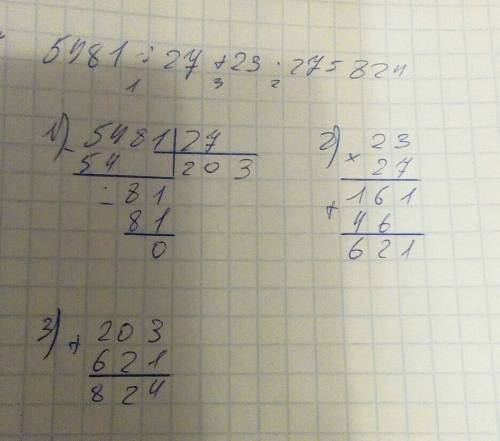 5481 : 27 + 23 · 27 = 824
1 3 2
1) 5481 | 27
- 54 | 203
- 81
81
0
2) 23
× 27
161
+ 46
621
3) 203
+ 621
824